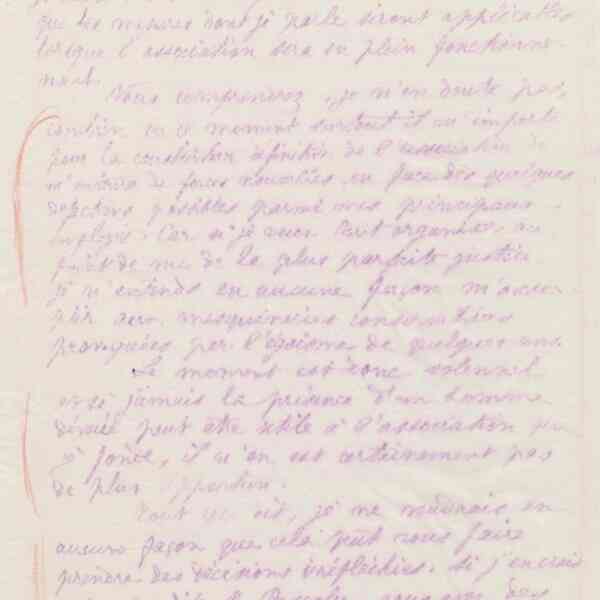 que les mesures dont je parle seront applicables
lorsque l'association sera en plein fonctionne-
ment.
Vous comprendrez, je n'en doute pas,
combien en ce moment surtout il m'importe
pour la constitution définitive de l'association de
m'munir de forces nouvelles en face des quelques
défections possibles parmi mes principaux
employés. Car si je veux tout organiser au
point de vue de la plus parfaite justice
je n'entends en aucune façon m'
aux mesquineries
par l'égoïsme de quelques uns.
Le moment est donc solennel
et si jamais la présence d'un homme
dévoué peut être utile à l'association que
je fonde, il n'en est certainement pas
de plus opportun.
Tout ceci dit, je ne voudrais en
aucune façon que cela pût vous faire
prendre des décisions irréfléchies. Si j'en crois